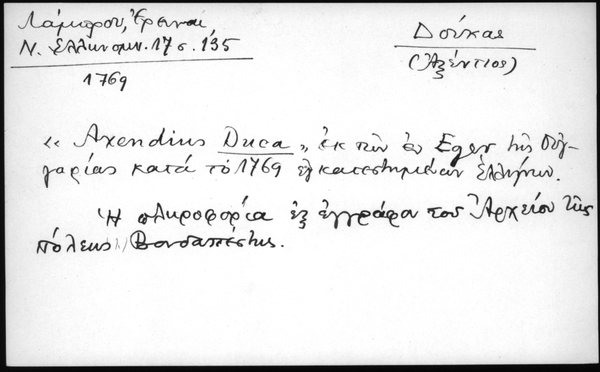 Λάμπρου, Ἔρευναι
Ν. Ἑλληνομν. 17 σ. 135
1769
Δούκας
(Αὐξέντιος)
« Axendius Duca », ἐκ τῶν ἐν Eger τῆς Οὑγ-
γαρίας κατά τό 1769 ἐγκατεστημένων Ἑλλήνων.
Ἡ πληροφορία ἐξ ἐγγράφου τοῦ Ἀρχείου τῆς
πόλεως Βουδαπέστης.